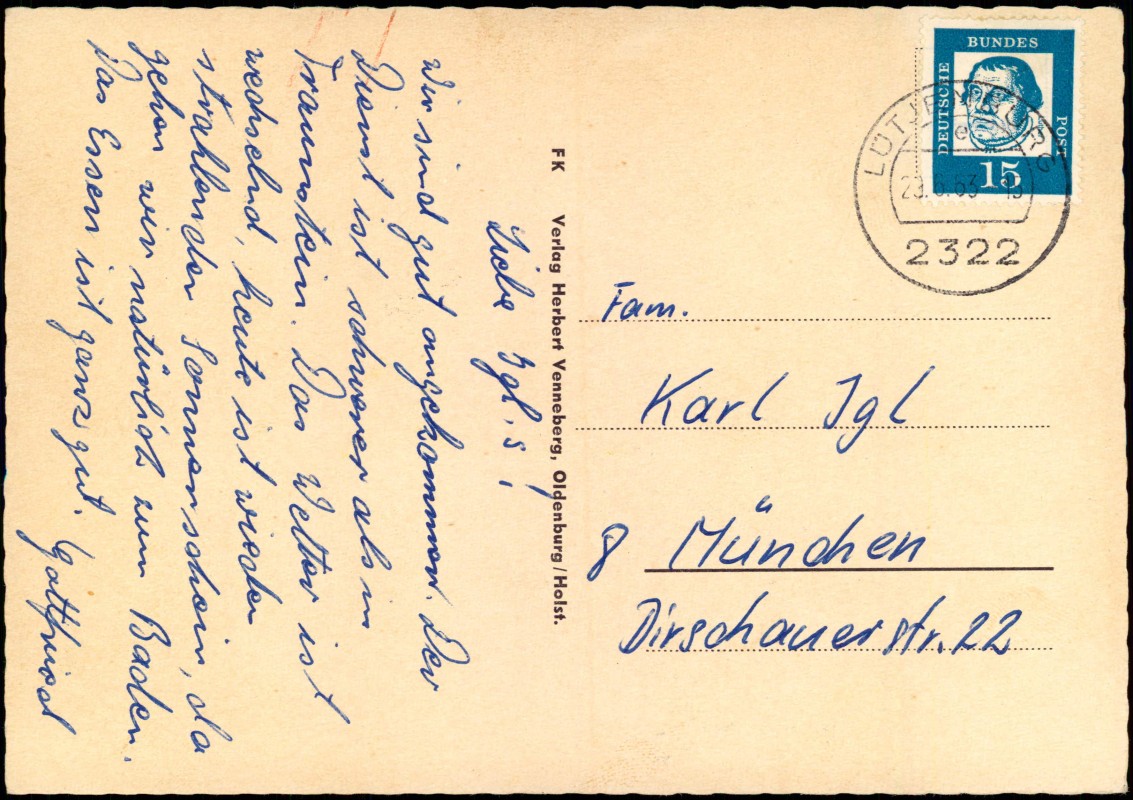 Liebe Igl,s!
Wir sind gut angekommen. Der
Dienst ist schwerer als in
Traunstein. Das Wetter ist
wechselnd, heute ist wieder
strahlender Sonnenschein, da
gehen wir natürlich zum Baden.
Das Essen ist ganz gut. Gottfried
FK Verlag Herbert Venneberg, Oldenburg/Holst.
DEUTSCHE
BUNDES
POST
15
LÜTJENBURG
e
2322
Fam.
Karl Igl
8 München
Dirschauerstr. 22